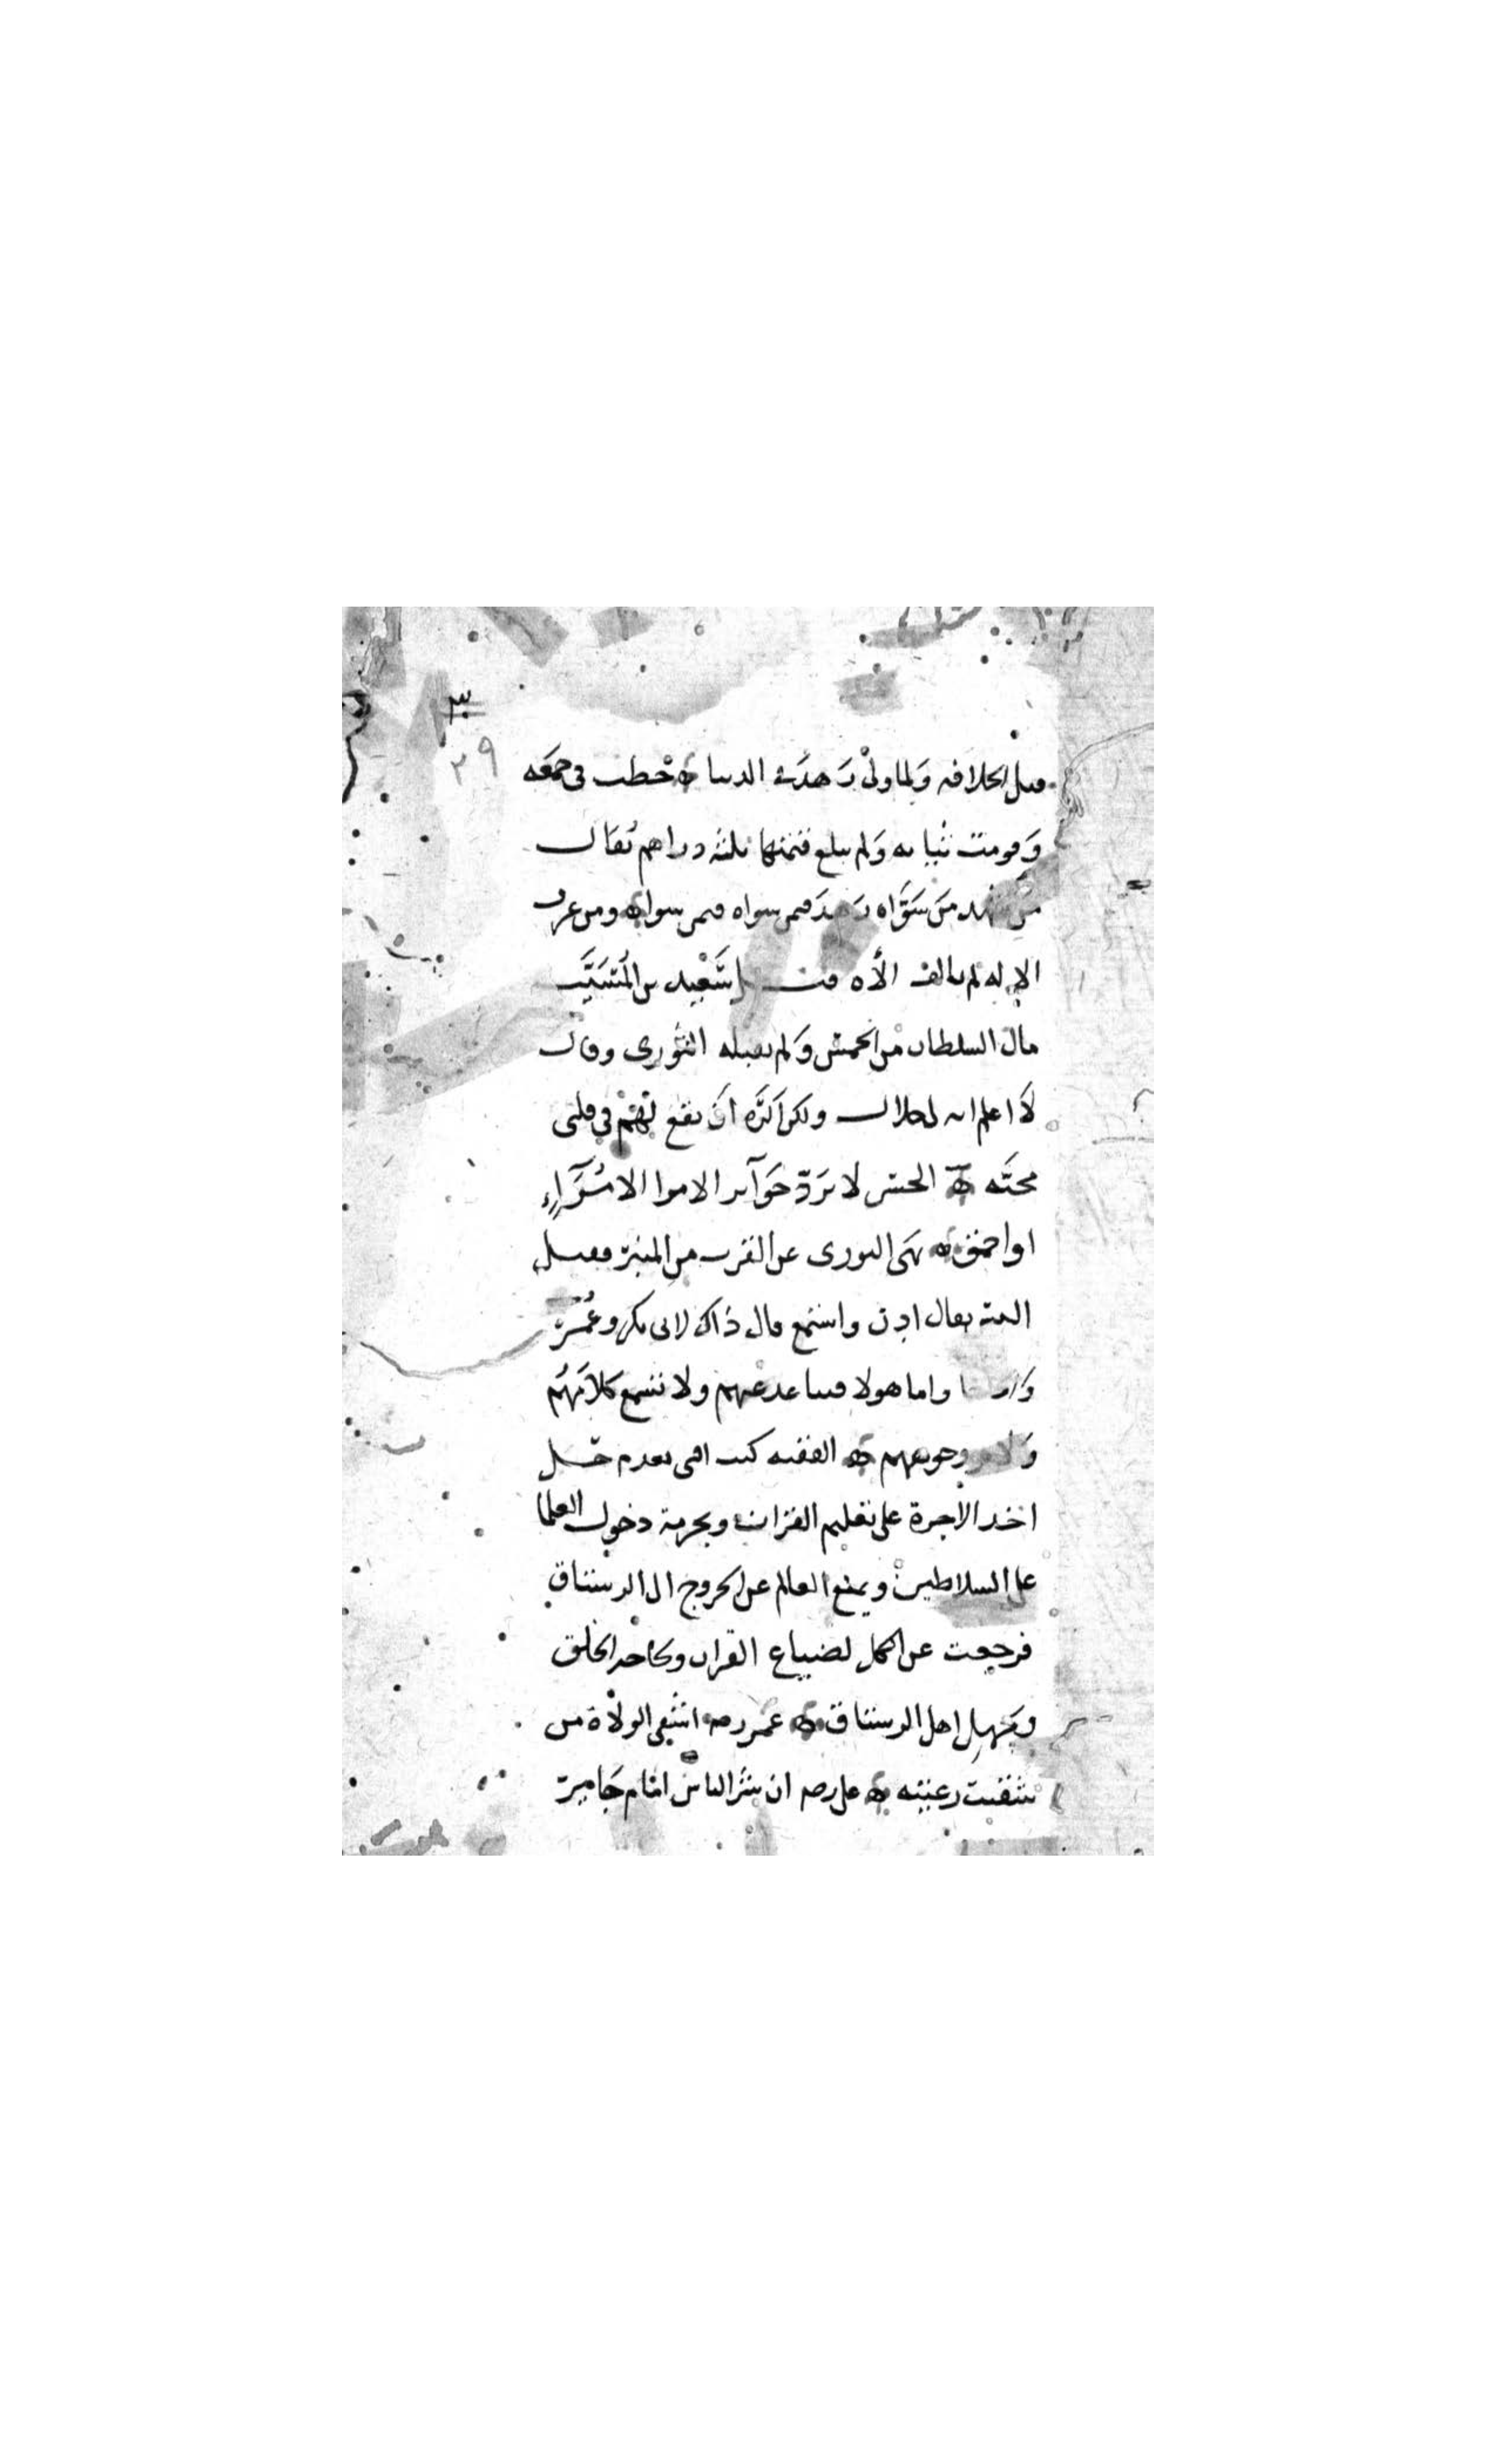 ٣٠
٢٩
قبل الخلافه وَلما ولىْ زَهدَت الدنيا ه خطب فى جمعه
وَقومت ثيابه وَلم يبلع قيمتها ثلثه دراهم فقال
مَن شهد مَن سَوَّاه زَهدَ فمن سواه ومن عرف
الاله لم يالف الأه قبل سَعْيد بن المُسَيَّب
مال السلطان من الخمس وَلم يقبله الثورى وقال
لاَ اعلم انه لى حلال ولكن اكرَه أن يقع لهم فى قلبى
محبَّه ه الحسن لا يَردّ جَوآيز الامرا الا مُرَآءٍ
او احمق ه نهَى الثورى عن القرب من المنبر فقيل
اليس يقال ادن واستمع قال ذاك لابى بكر وعُمَرَ
واما هولا فتباعد عنهم ولا تسمع كلاَمَهُم
وَلا وجوههم ه الفقيه كنت افتى بعدم حل
اخذ الاجرة على تعليم القران وبحرمة دخول العلما
على السلاطين ويمنع العالم عن الخروج الى الرستاق
فرجعت عن الكل لضياع القران وحاجه الخلق
وَجهل اهل الرستاق ه عمر رضه اشقى الولاة من
شقيت رعيته ه على رضه ان شرَّ الناس امَام جَايرٌ